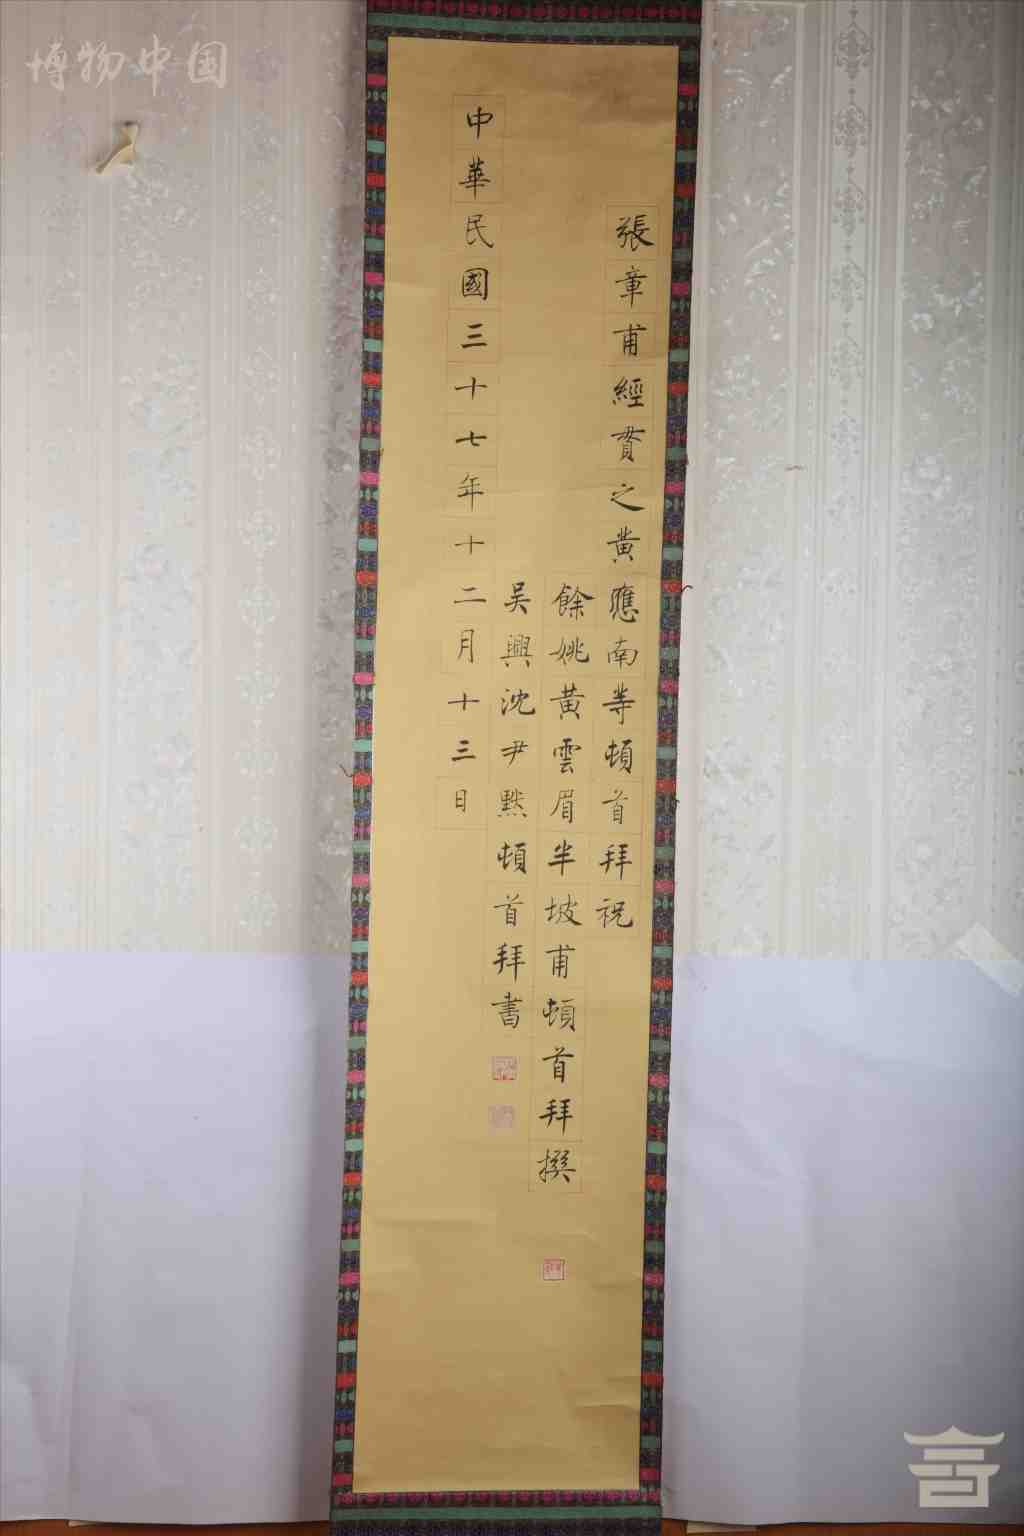 張章甫經貫之黃應南等頓首拜祝
餘姚黃雲眉半坡甫頓首拜撰
吳興沈尹默頓首拜書
中華民國三十七年十二月十三日
博物中国